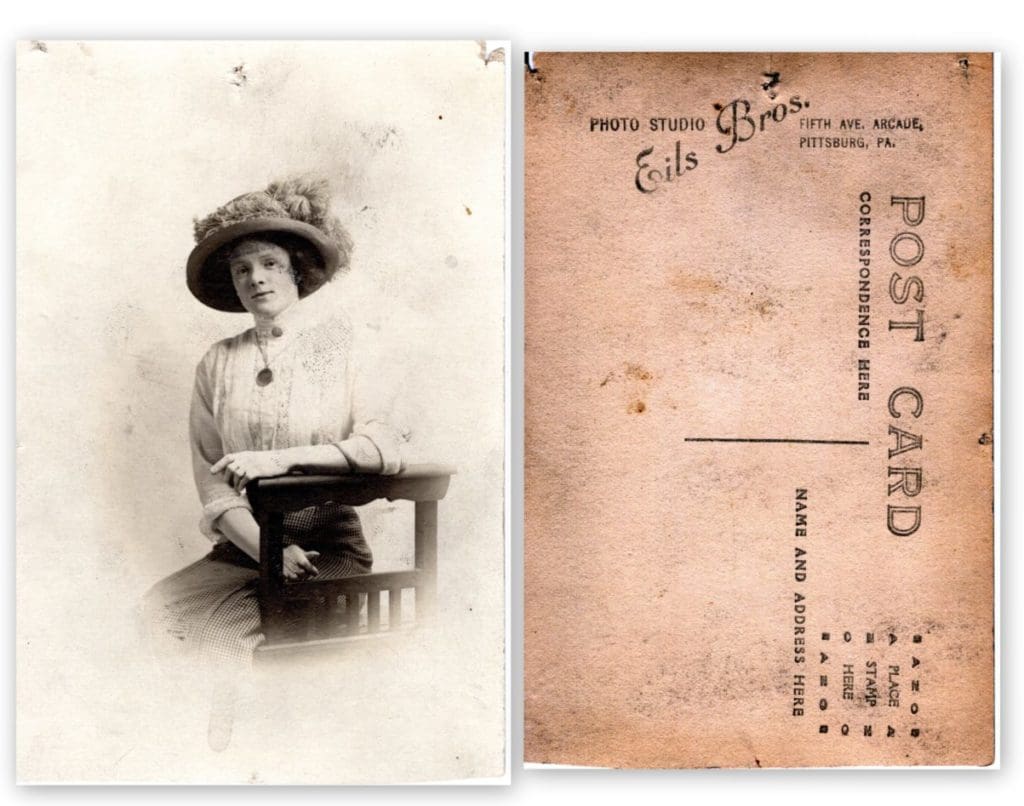 PHOTO STUDIO Eils Bros. FIFTH AVE. ARCADE,
PITTSBURG, PA.
POST CARD
CORRESPONDENCE HERE
NAME AND ADDRESS HERE
AZO
A PLACE A
Z STAMP Z
O HERE O
AZO